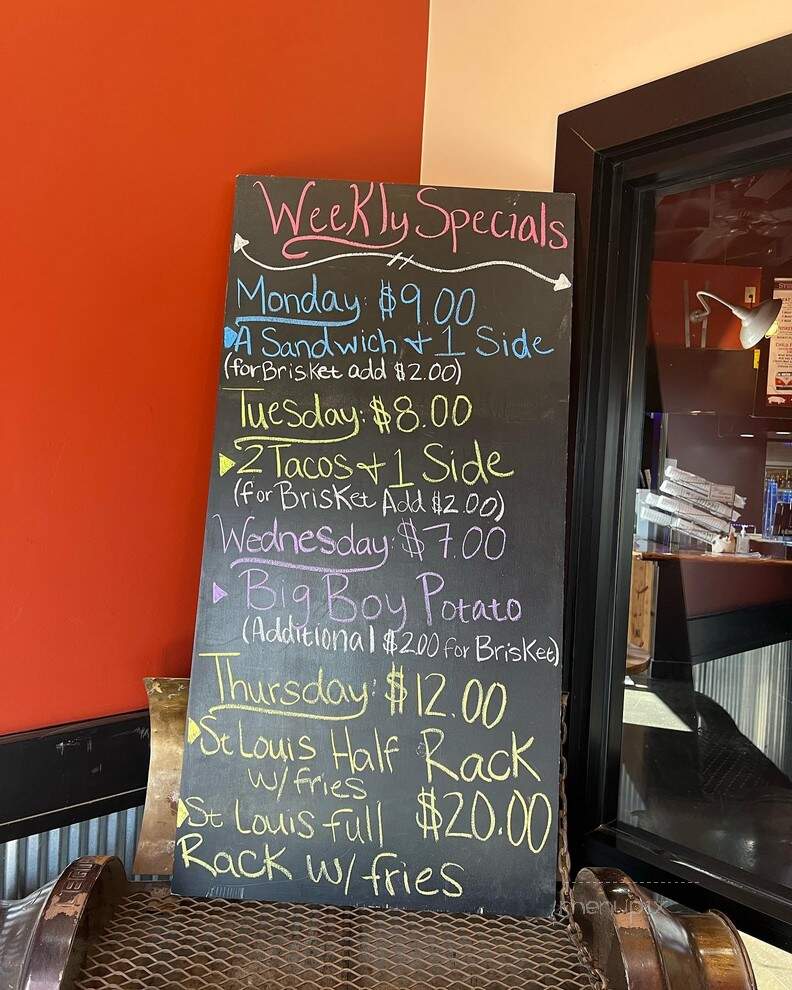 Weekly Specials
Monday: $9.00
A Sandwich + 1 Side
(for Brisket add $2.00)
Tuesday: $8.00
2 Tacos + 1 Side
(for Brisket Add $2.00)
Wednesday: $7.00
Big Boy Potato
(Additional $2.00 for Brisket)
Thursday: $12.00
St Louis Half Rack
w/fries
St Louis full $20.00
Rack w/ fries
menupix